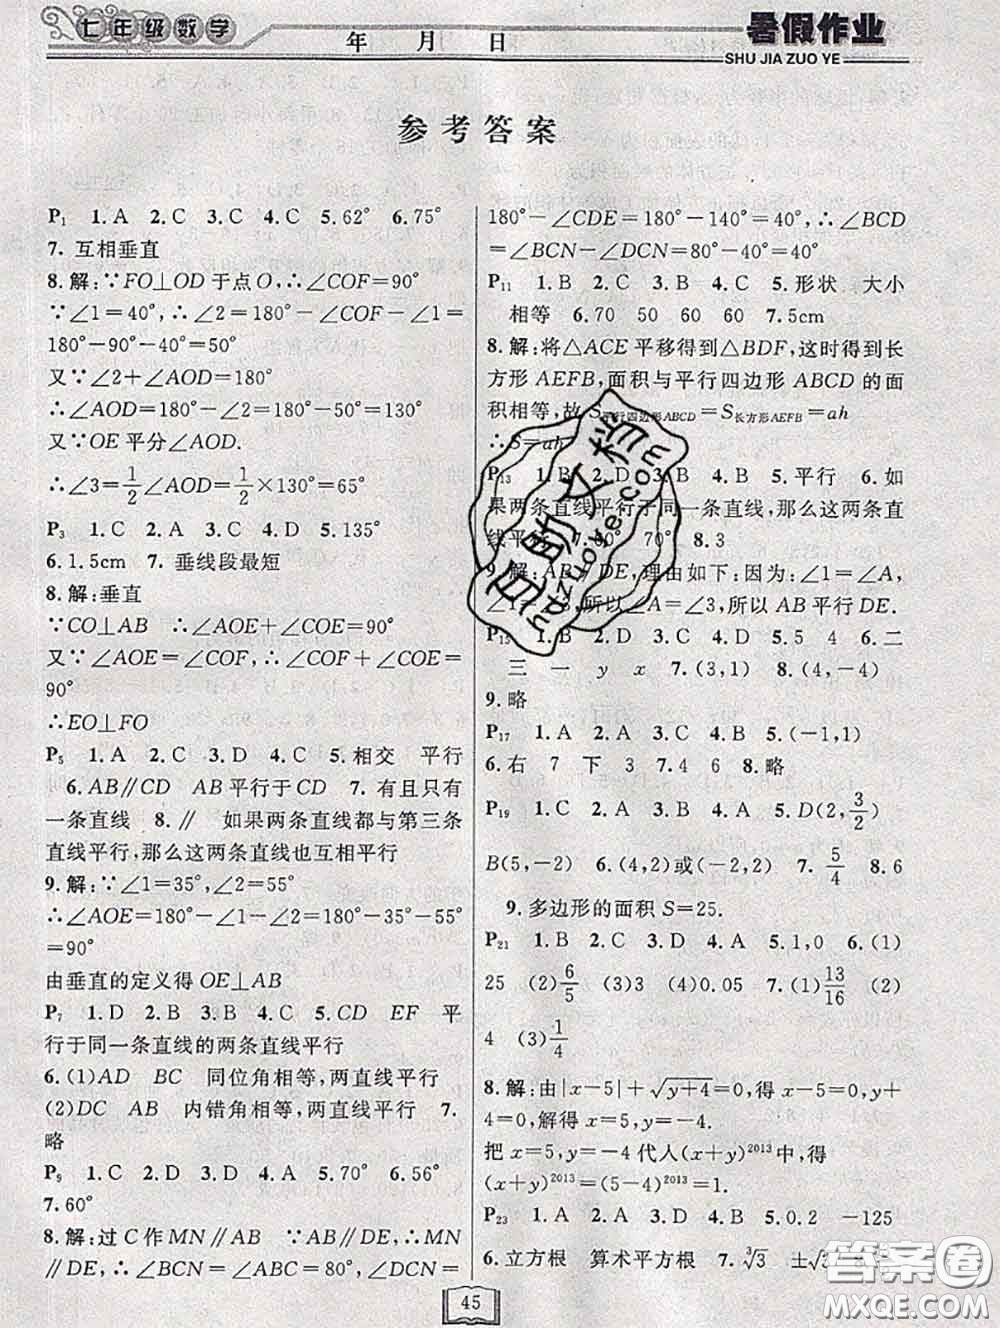 七年级数学
年 月 日
暑假作业
SHU JIA ZUO YE
参考答案
P1 1.A 2.C 3.C 4.C 5.62° 6.75°
7. 互相垂直
8.解:∵FO⊥OD于点O,∴∠COF=90°
∵∠1=40°,∴∠2=180°-∠COF-∠1=
180°-90°-40°=50°
又∵∠2+∠AOD=180°
∴∠AOD=180°-∠2=180°-50°=130°
又∵OE平分∠AOD.
∴∠3=1/2∠AOD=1/2×130°=65°
P3 1.C 2.A 3.C 4.D 5.135°
6.1.5cm 7.垂线段最短
8.解:垂直
∵CO⊥AB ∴∠AOE+∠COE=90°
又∵∠AOE=∠COF,∴∠COF+∠COE=
90°
∴EO⊥FO
P5 1.A 2.C 3.D 4.C 5.相交 平行
6.AB∥CD AB平行于CD 7.有且只有
一条直线 8.∥ 如果两条直线都与第三条
直线平行,那么这两条直线也互相平行
9.解:∵∠1=35°,∠2=55°
∴∠AOE=180°-∠1-∠2=180°-35°-55°
=90°
由垂直的定义得OE⊥AB
P7 1.D 2.B 3.B 4.C 5.CD EF 平
行于同一条直线的两条直线平行
6.(1)AD BC 同位角相等,两直线平行
(2)DC AB 内错角相等,两直线平行 7.
略
P9 1.C 2.C 3.D 4.A 5.70° 6.56°
7.60°
8.解:过C作MN∥AB ∵AB∥DE,∴MN
∥DE,∴∠BCN=∠ABC=80°,∠DCN=
180°-∠CDE=180°-140°=40°,∴∠BCD
=∠BCN-∠DCN=80°-40°=40°
P11 1.B 2.C 3.B 4.C 5.形状 大小
相等 6.70 50 60 60 7.5cm
8.解:将△ACE平移得到△BDF,这时得到长
方形AEFB,面积与平行四边形ABCD的面
积相等,故S平行四边形ABCD=S长方形AEFB=ah
∴S=ah
P13 1.B 2.D 3.B 4.B 5.平行 6.如
果两条直线平行于同一条直线,那么这两条直
线平行 7.60° 70° 8.3
9.解:AB∥DE,理由如下:因为∠1=∠A,
∠1=∠3,所以∠A=∠3,所以AB平行DE.
P15 1.B 2.D 3.B 4.D 5.5 4 6.二
三 一 y x 7.(3,1) 8.(4,-4)
9.略
P17 1.A 2.A 3.A 4.B 5.(-1,1)
6.右 7 下 3 7.4 6 8.略
P19 1.C 2.A 3.A 4.A 5.D(2,3/2)
B(5,-2) 6.(4,2)或(-2,2) 7.5/4 8.6
9.多边形的面积S=25.
P21 1.B 2.B 3.D 4.A 5.1,0 6.(1)
25 (2)6/5 (3)3 (4)0.05 7.(1)13/16 (2)
4 (3)1/4
8.解:由|x-5|+√(y+4)=0,得x-5=0,y+
4=0,解得x=5,y=-4.
把x=5,y=-4代人(x+y)²⁰¹³中,得
(x+y)²⁰¹³=(5-4)²⁰¹³=1.
P23 1.A 2.B 3.D 4.A 5.0.2 -125
6.立方根 算术平方根 7.³√3 ±√3
45
自助文档
udzuoye.com
答案圈
MXQE.COM